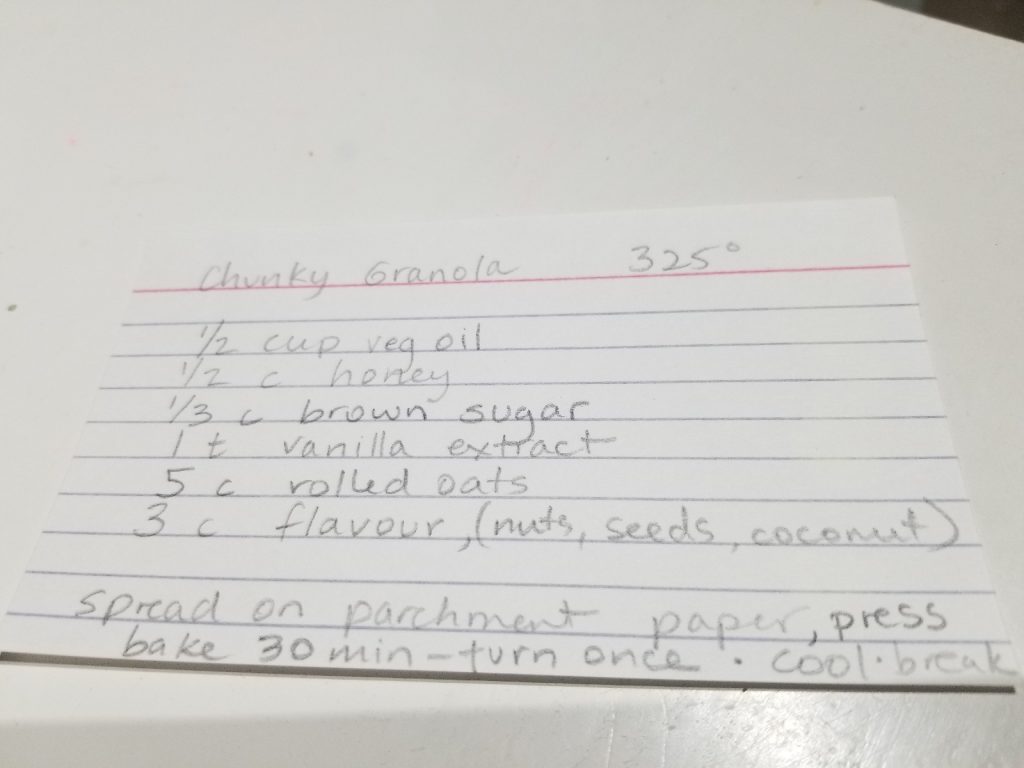 Chunky Granola 325°
1/2 cup veg oil
1/2 c honey
1/3 c brown sugar
1 t vanilla extract
5 c rolled oats
3 c flavour, (nuts, seeds, coconut)
spread on parchment paper, press
bake 30 min - turn once . cool . break